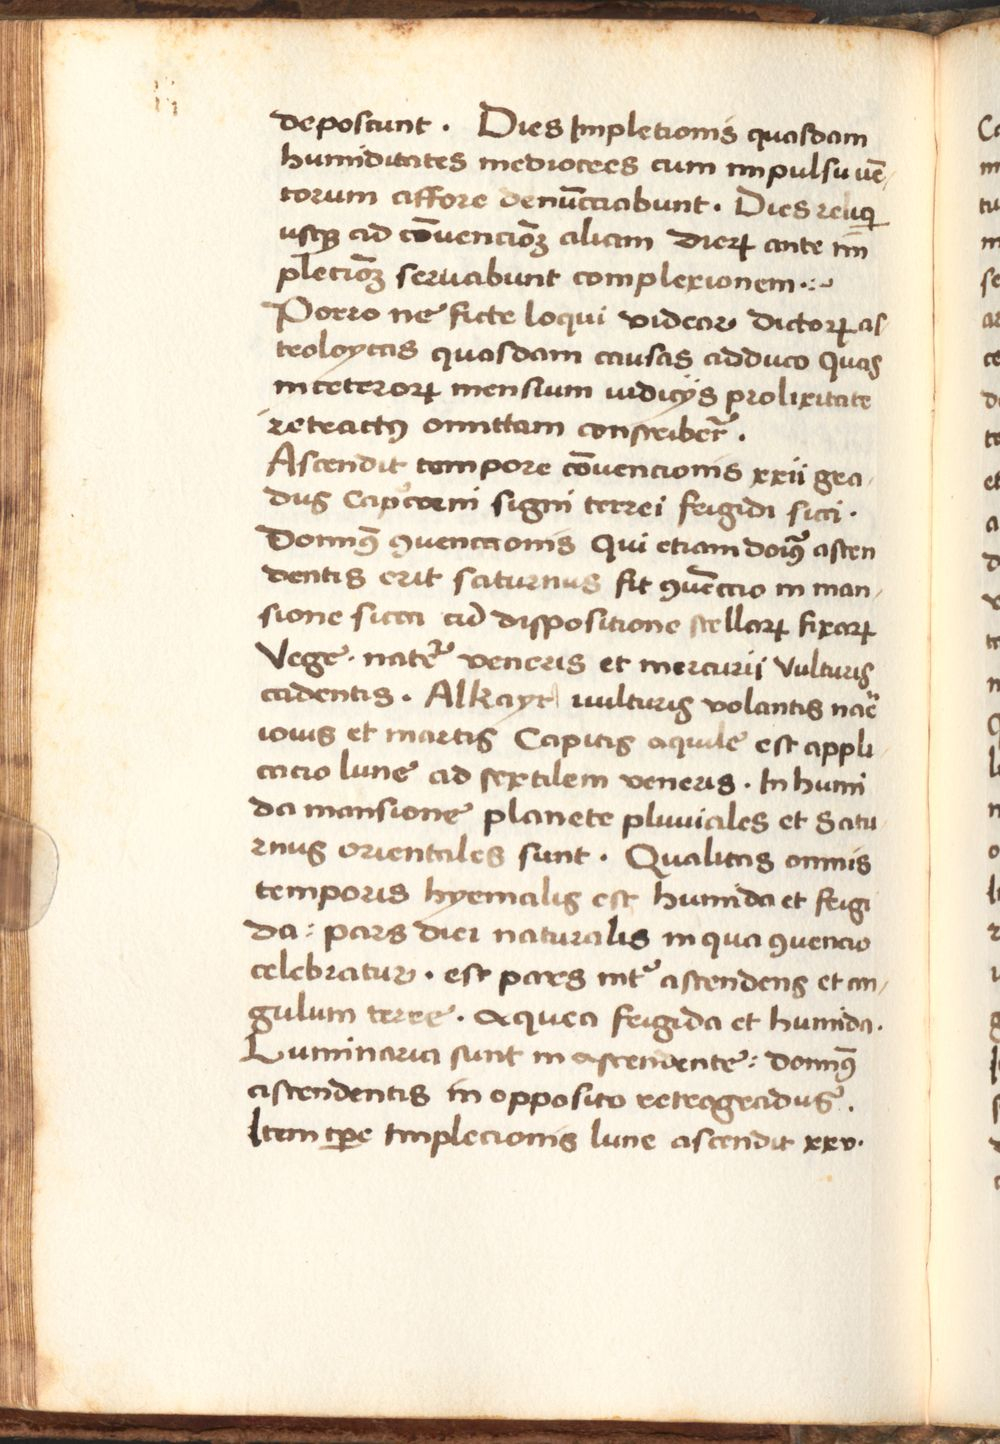 deposcunt. Dies Impletionis quasdam
humiditates mediocres cum impulsu uē-
torum affore denūcciabunt. Dies reliqi
usqꝫ ad cōuencōꝫ aliam dieꝝ ante im
plecōꝫ seruabunt complexionem.:~
Porro ne ficte loqui videar dictoꝝ as
teoloycas quasdam causas adduco Quas
in ceteroꝝ mensium iudicijs prolixitate
retractꝰ omittam conscribeꝛ̄.
Ascendit tempore cōuencionis xxii gra-
dus Capicorni signi terrei frigidi sicci.
Domiꝰ ꝯuenccionis Qui etiam doīꝰ ascen
dentis erit saturnus fit ꝯuēccio in man-
sione sicca cū dispositione stellaꝝ fixaꝝ
Vege. nate᷑ veneris et mercurii Vulturis
cadentis. Alkayr uulturis volantis nāe
iouis et martis Capitis aquile est appli
cacio lune ad sextilem veneris. In humi
da mansione planete pluuiales et Satu-
rnus orientales sunt. Qualitas omnis
temporis hyemalis est humida et frigi
da: pars diei naturalis in qua ꝯuencio
celebratur. est pars int᷑ ascendens et an-
gulum terre. Aquea frigida et humida.
Luminaria sunt in ascendente: domiꝰ
ascendentis in opposito retrogradus.
Item tꝑe Implecionis lune ascendit xxv.